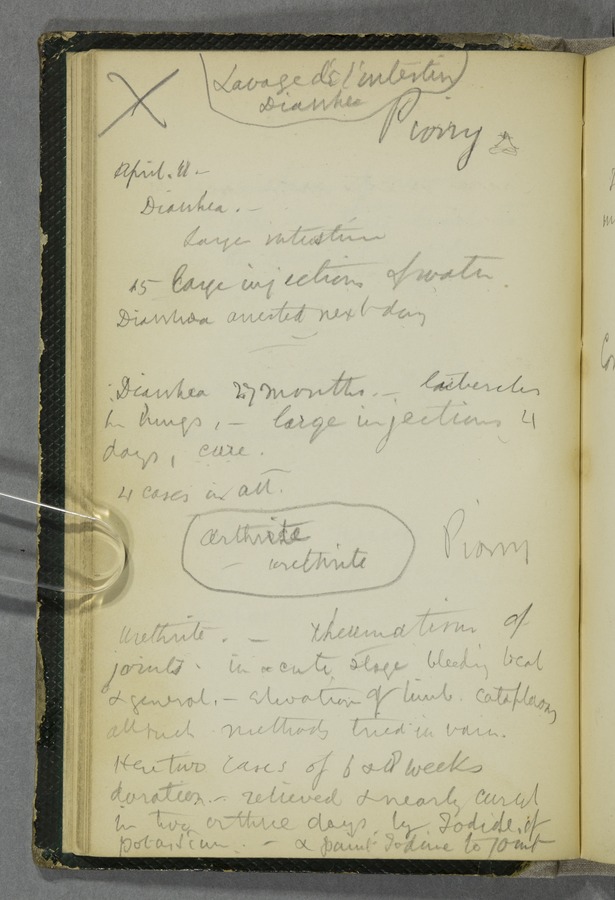 Lavage de l'intestin
Diarrhea
Piorry
April. 11 -
Diarrhea. -
Large intestine
15 large injections of water.
Diarrhoea arrested next day
Diarrhea 27 months. - tubercles
in lungs, - large injections 4
days, cure.
4 cases in all.
Arthrite
- urethrite
Piorry
Urethrite. - rheumatism of
joints. in acute stage bleeding local
& general. - elevation of limb. cataplasms
all such methods tried in vain.
Here two cases of 6 & 8 weeks
duration. - relieved & nearly cured
in two or three days by Iodide of
potassium. - & paint Iodine to joint